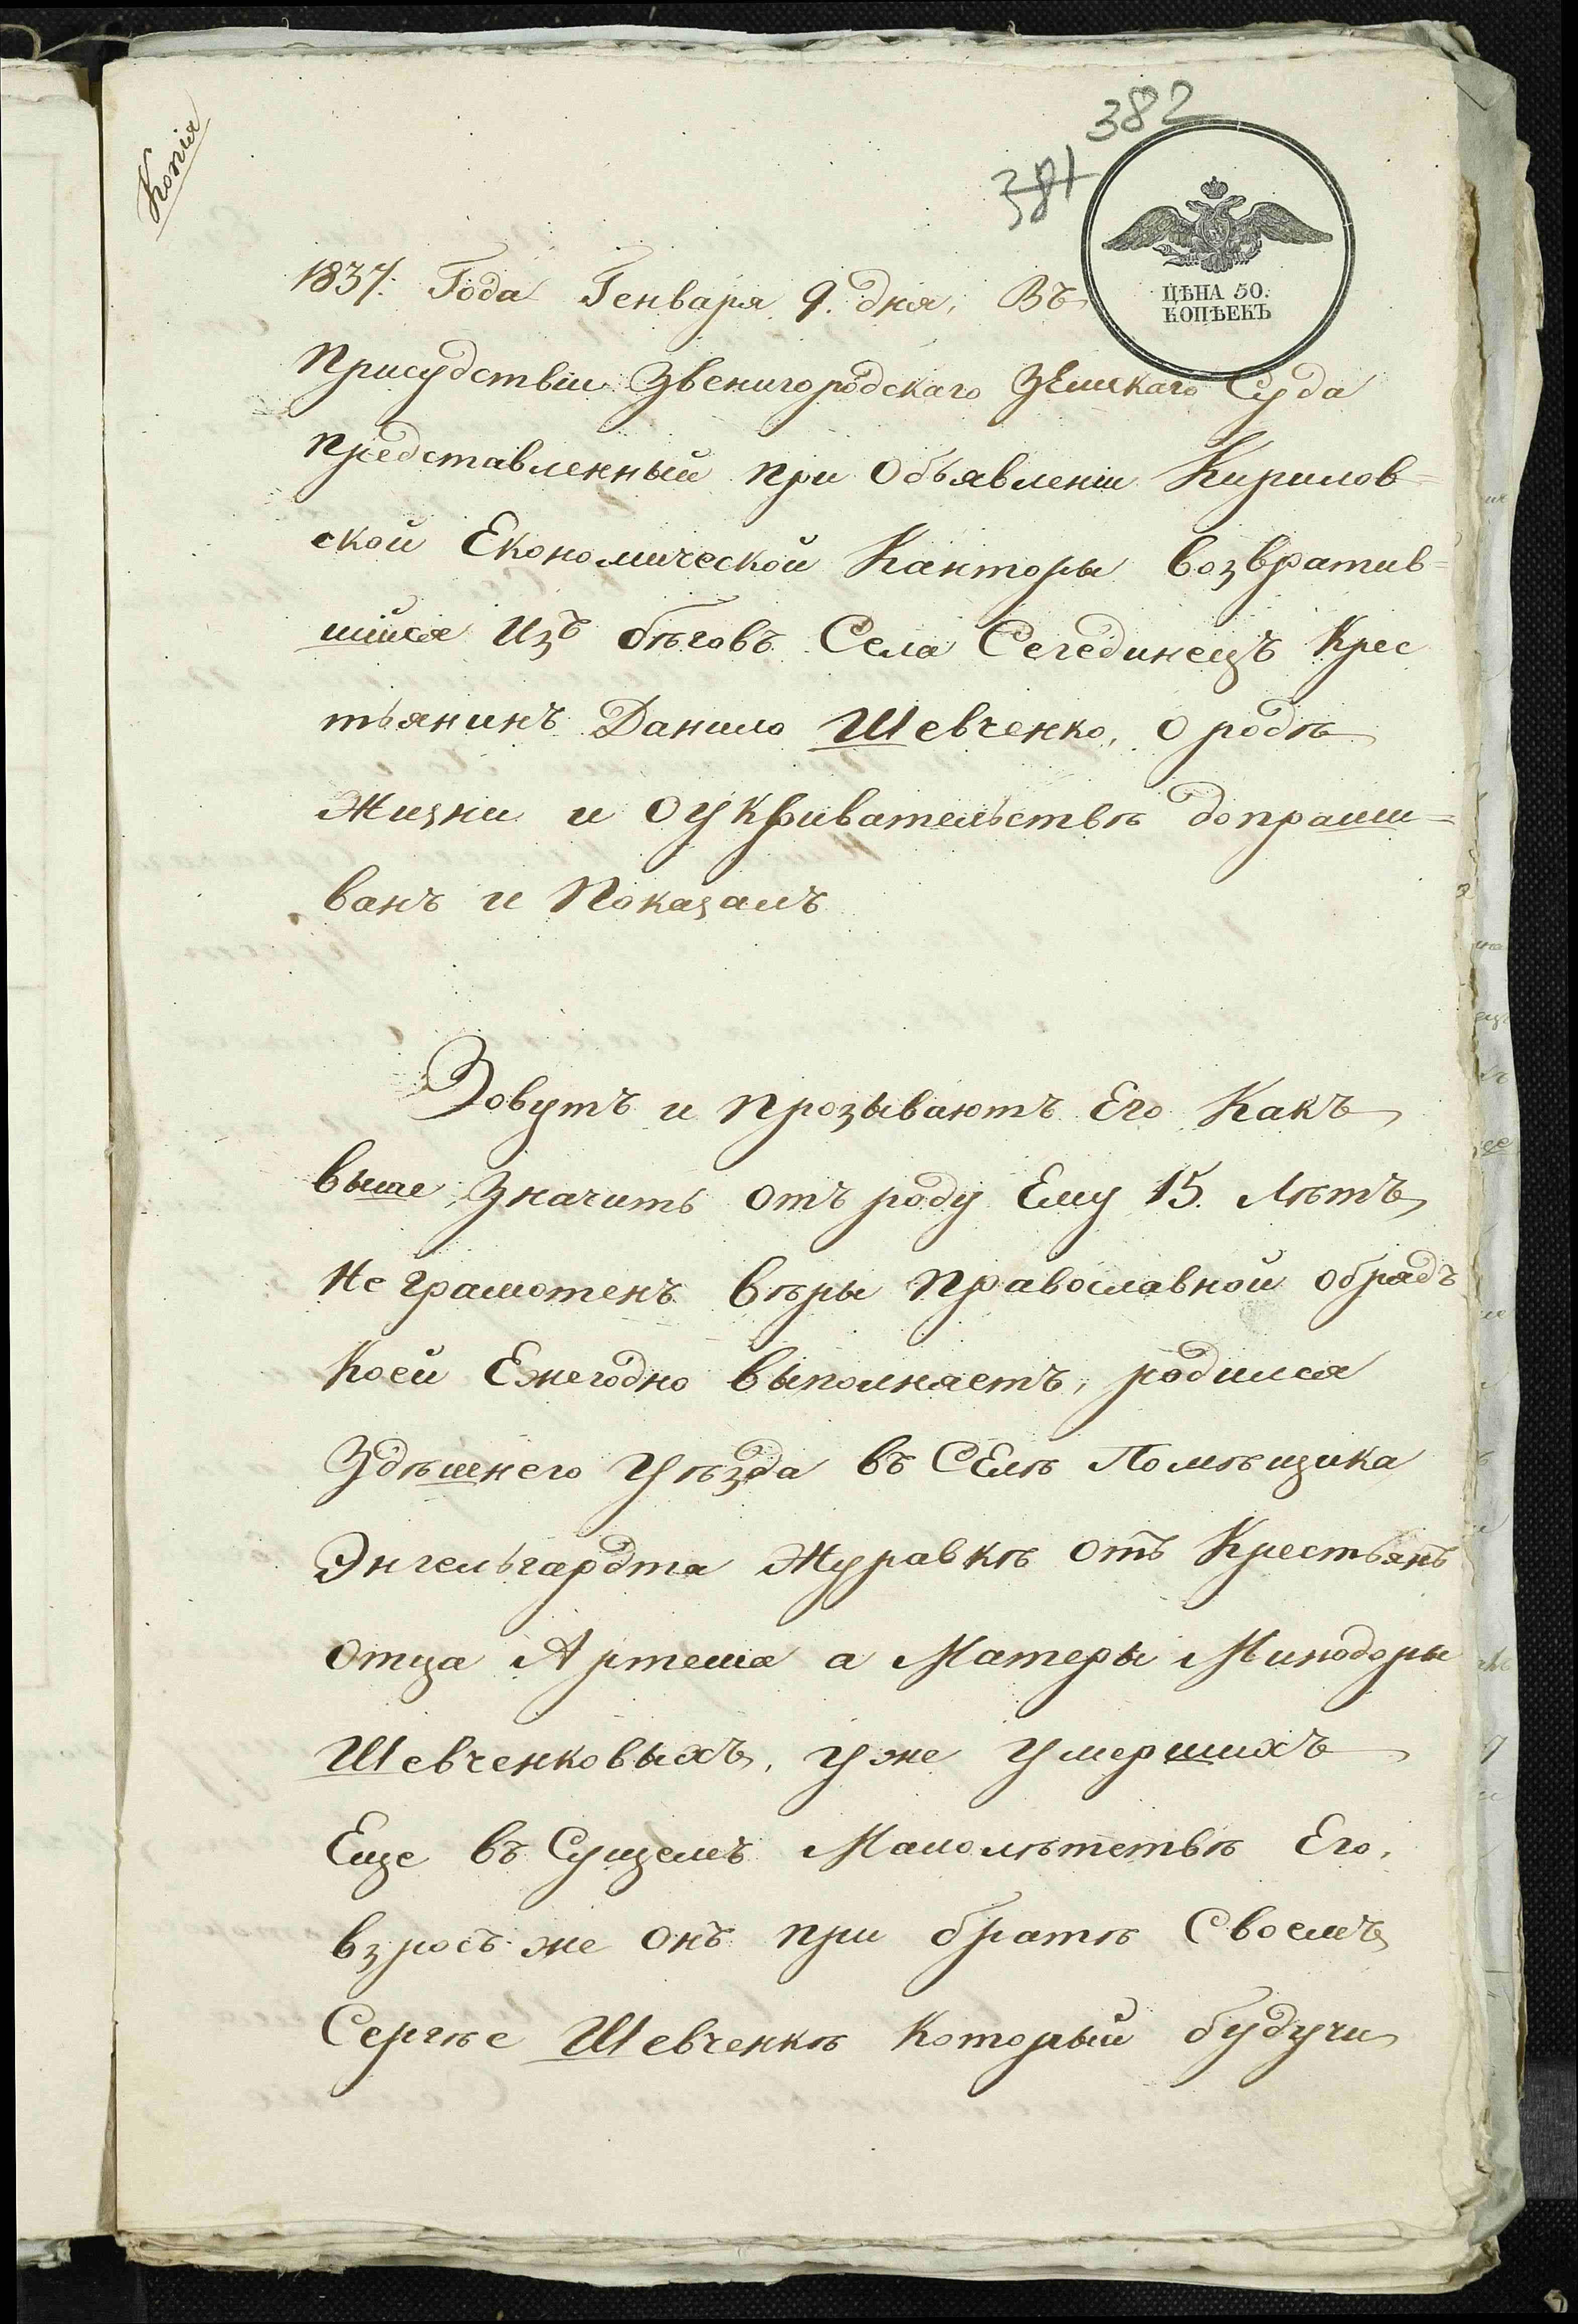 Копія
382
381
ЦѢНА 50.
КОПѢЕКЪ
1837. Года Генваря 9. дня, Въ
присудствіи Звенигородскаго Земскаго Суда
представленный при Объявленіи Кирилов=
ской Економической Канторы возвратив=
шійся Изъ бѣговъ Села Сегединецъ Крес
тьянинъ Данило Шевченко, о родѣ
жизни и о укривательствѣ допраши=
ванъ и Показалъ
Зовутъ и прозываютъ Его Какъ
выше значитъ отъ роду Ему 15. лѣтъ
Не грамотенъ вѣры Православной обрядъ
Коей Ежегодно выполняетъ, родился
Здѣшнего Уѣзда въ Селѣ Помѣщика
Энгельгардта Журавкѣ отъ Крестьянъ
отца Артема а Матеры Минодоры
Шевченковыхъ, уже умершихъ
Еще въ Сущемъ Малолѣтствѣ Его,
взросъ же онъ при братѣ Своемъ
Сергѣе Шевченкѣ Который будучи